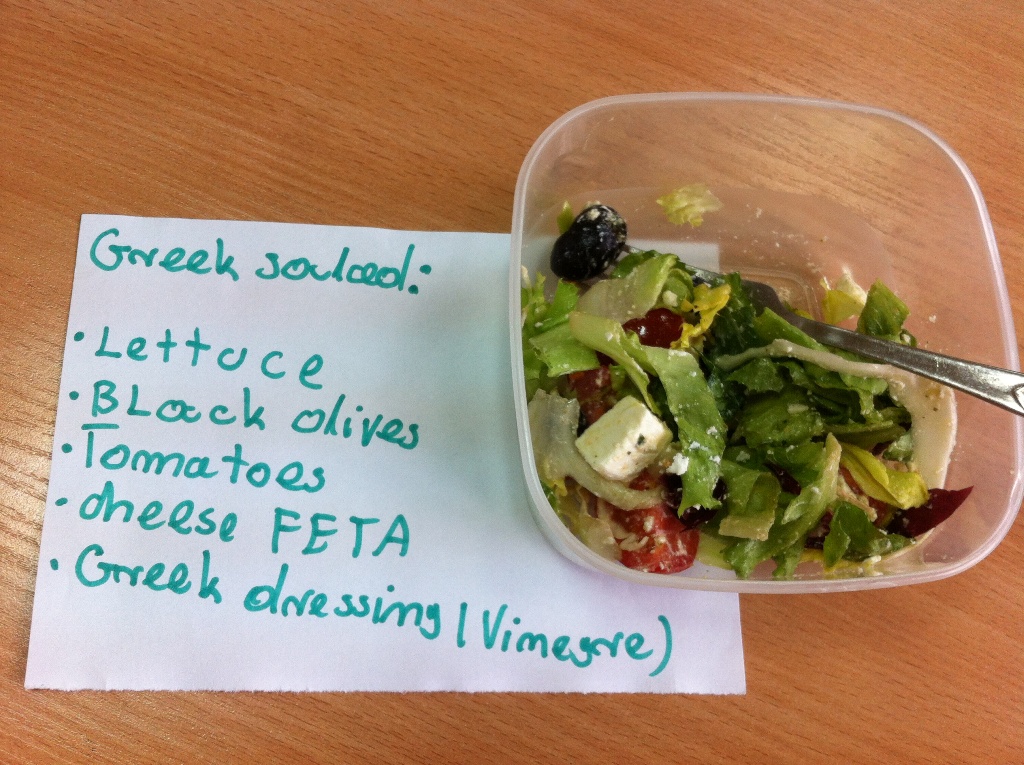 Greek soulad:
• Lettuce
• BLack olives
• Tomatoes
• cheese FETA
• Greek dressing (Vinegre)